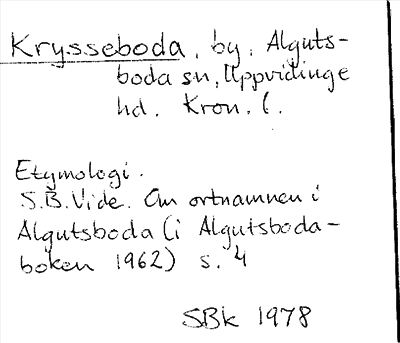 Krysseboda, by, Alguts-
boda sn, Uppvidinge
hd. Kron. l.
Etymologi.
S.B. Vide. Om ortnamnen i
Algutsboda (i Algutsboda-
boken 1962) s. 4
SBk 1978